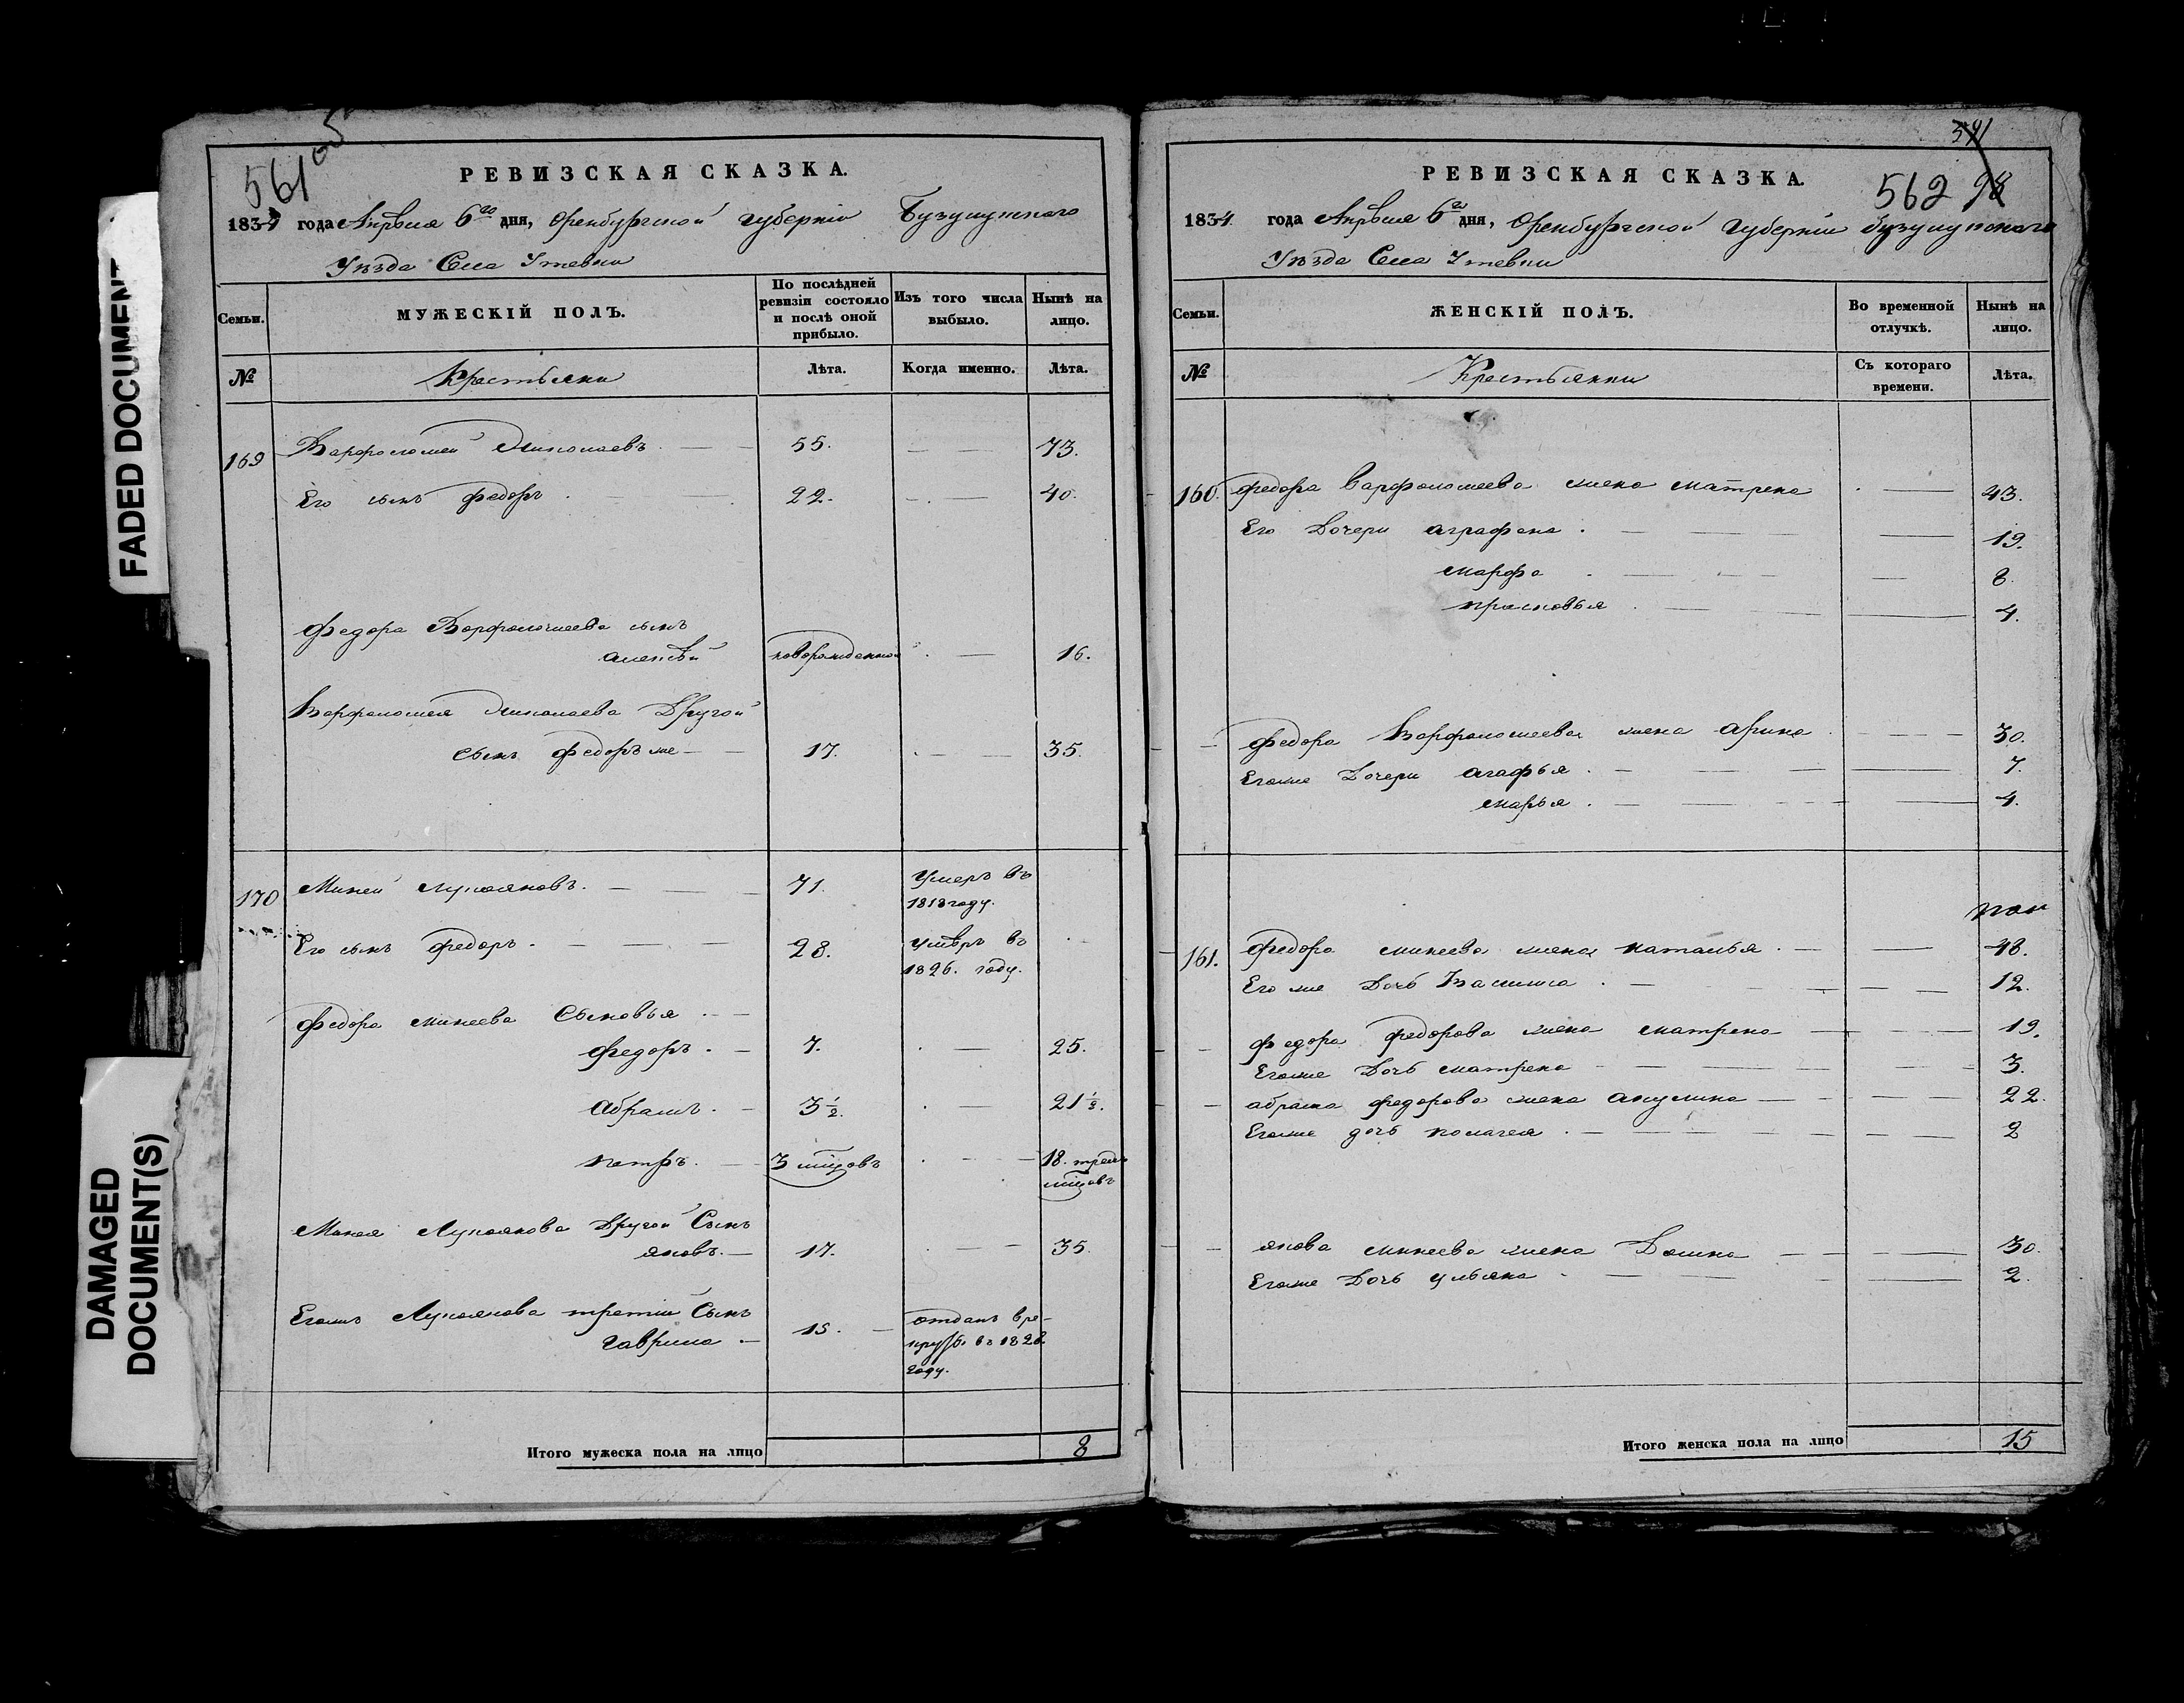 FADED DOCUMENT
DAMAGED
DOCUMENT(S)
561
РЕВИЗСКАЯ СКАЗКА.
1834 года Апрѣля 6го дня, Оренбургской губерніи Бузулукскаго
Уѣзда Села Утевки
Семьи.
МУЖЕСКІЙ ПОЛЪ.
По послѣдней ревизіи состояло и послѣ оной прибыло.
Изъ того числа выбыло.
Нынѣ на лицо.
№ Крестьяне Лѣта. Когда именно. Лѣта.
169 Варфоломей Миколаевъ 55. 73.
Его сынъ федоръ 22. 40.
Федора Варфоломеева сынъ
алексѣй новорожденной 16.
Варфоломея Миколаева Другой
сынъ федоръ же 17. 35.
170 Миней Лукояновъ 71. Умеръ въ
1818 году.
Его сынъ федоръ 28. умѣръ въ
1826. году.
федора минеева Сыновья
федоръ 7. 25.
абрамъ 3½. 21½.
петръ 3 мцовъ 18. трехъ
мцовъ
Минея Лукоянова Другой Сынъ
яковъ 17. 35.
Егожъ Лукоянова третій Сынъ
гаврила 15. отданъ вре-
круты въ 1828
году.
Итого мужеска пола на лицо 8
341
562 98
РЕВИЗСКАЯ СКАЗКА.
1834 года Апрѣля 6го дня, Оренбургской Губерніи бузулукскаго
Уѣзда Села Утевки
Семьи.
ЖЕНСКІЙ ПОЛЪ.
Во временной отлучкѣ.
Нынѣ на лицо.
№ Крестьянки Съ котораго времени. Лѣта.
160. федора варфоломеева жена матрена 43.
Его Дочери аграфена 19.
марфа 8.
прасковья 4.
федора Варфоломеева жена арина 30.
Егоже Дочери агафья 7.
марья 4.
161. федора минеева жена наталья 48.
Его же Дочь Василиса 12.
федора федорова жена матрена 19.
Егоже Дочь матрена 3.
абрама федорова жена акулина 22.
Егоже дочь пелагея 2
якова минеева жена Домна 30.
Егоже Дочь ульяна 2.
Итого женска пола на лицо 15